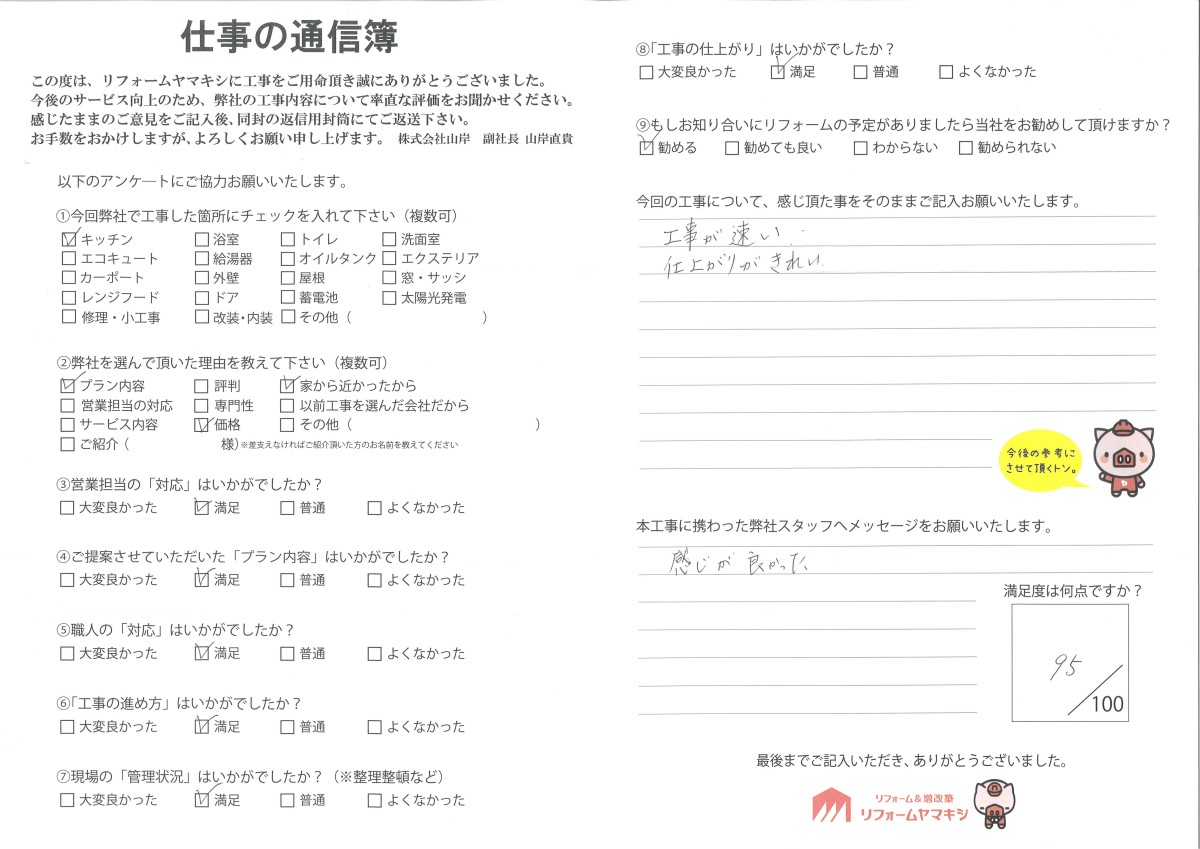 仕事の通信簿
この度は、リフォームヤマキシに工事をご用命頂き誠にありがとうございました。
今後のサービス向上のため、弊社の工事内容について率直な評価をお聞かせください。
感じたままのご意見をご記入後、同封の返信用封筒にてご返送下さい。
お手数をおかけしますが、よろしくお願い申し上げます。 株式会社山岸 副社長 山岸直貴
以下のアンケートにご協力お願いいたします。
①今回弊社で工事した箇所にチェックを入れて下さい（複数可）
☑キッチン □浴室 □トイレ □洗面室
□エコキュート □給湯器 □オイルタンク □エクステリア
□カーポート □外壁 □屋根 □窓・サッシ
□レンジフード □ドア □蓄電池 □太陽光発電
□修理・小工事 □改装・内装 □その他（ ）
②弊社を選んで頂いた理由を教えて下さい（複数可）
☑プラン内容 □評判 ☑家から近かったから
□営業担当の対応 □専門性 □以前工事を選んだ会社だから
□サービス内容 ☑価格 □その他（ ）
□ご紹介（ 様）※差支えなければご紹介頂いた方のお名前を教えてください
③営業担当の「対応」はいかがでしたか？
□大変良かった ☑満足 □普通 □よくなかった
④ご提案させていただいた「プラン内容」はいかがでしたか？
□大変良かった ☑満足 □普通 □よくなかった
⑤職人の「対応」はいかがでしたか？
□大変良かった ☑満足 □普通 □よくなかった
⑥「工事の進め方」はいかがでしたか？
□大変良かった ☑満足 □普通 □よくなかった
⑦現場の「管理状況」はいかがでしたか？（※整理整頓など）
□大変良かった ☑満足 □普通 □よくなかった
⑧「工事の仕上がり」はいかがでしたか？
□大変良かった ☑満足 □普通 □よくなかった
⑨もしお知り合いにリフォームの予定がありましたら当社をお勧めして頂けますか？
☑勧める □勧めても良い □わからない □勧められない
今回の工事について、感じ頂た事をそのままご記入お願いいたします。
工事が速い
仕上がりがきれい
今後の参考に
させて頂くトン。
ヤ
本工事に携わった弊社スタッフへメッセージをお願いいたします。
感じが良かった
満足度は何点ですか？
95
/100
最後までご記入いただき、ありがとうございました。
リフォーム＆増改築
リフォームヤマキシ